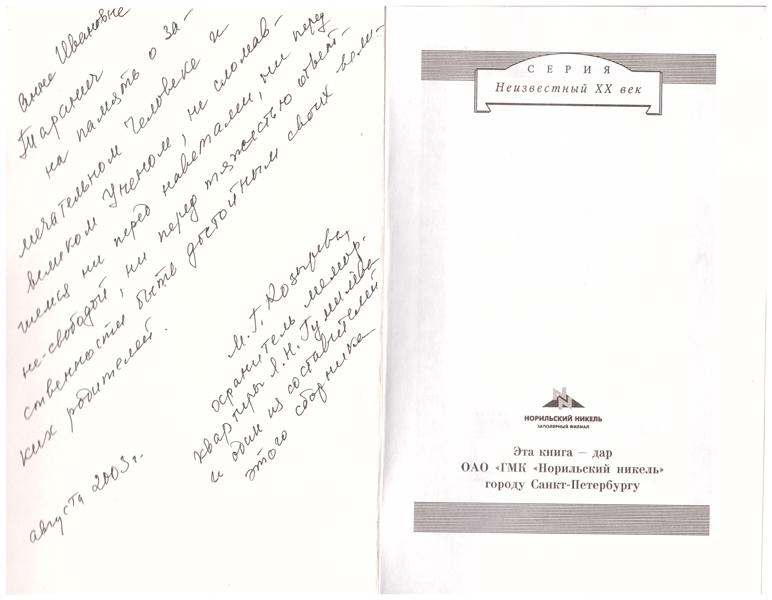 Анне Ивановне
Таранич
на память о за-
мечательном Человеке и
великом Ученом, не сломав-
шемся ни перед наветами, ни перед
не-свободой, ни перед тяжестью ответ-
ственности быть достойным своих вели-
ких родителей.
М. Г. Козырева,
хранитель мемор.
квартиры Л. Н. Гумилева
и один из составителей
этого сборника
августа 2003 г.
СЕРИЯ
Неизвестный XX век
НОРИЛЬСКИЙ НИКЕЛЬ
ЗАПОЛЯРНЫЙ ФИЛИАЛ
Эта книга — дар
ОАО «ГМК «Норильский никель»
городу Санкт-Петербургу